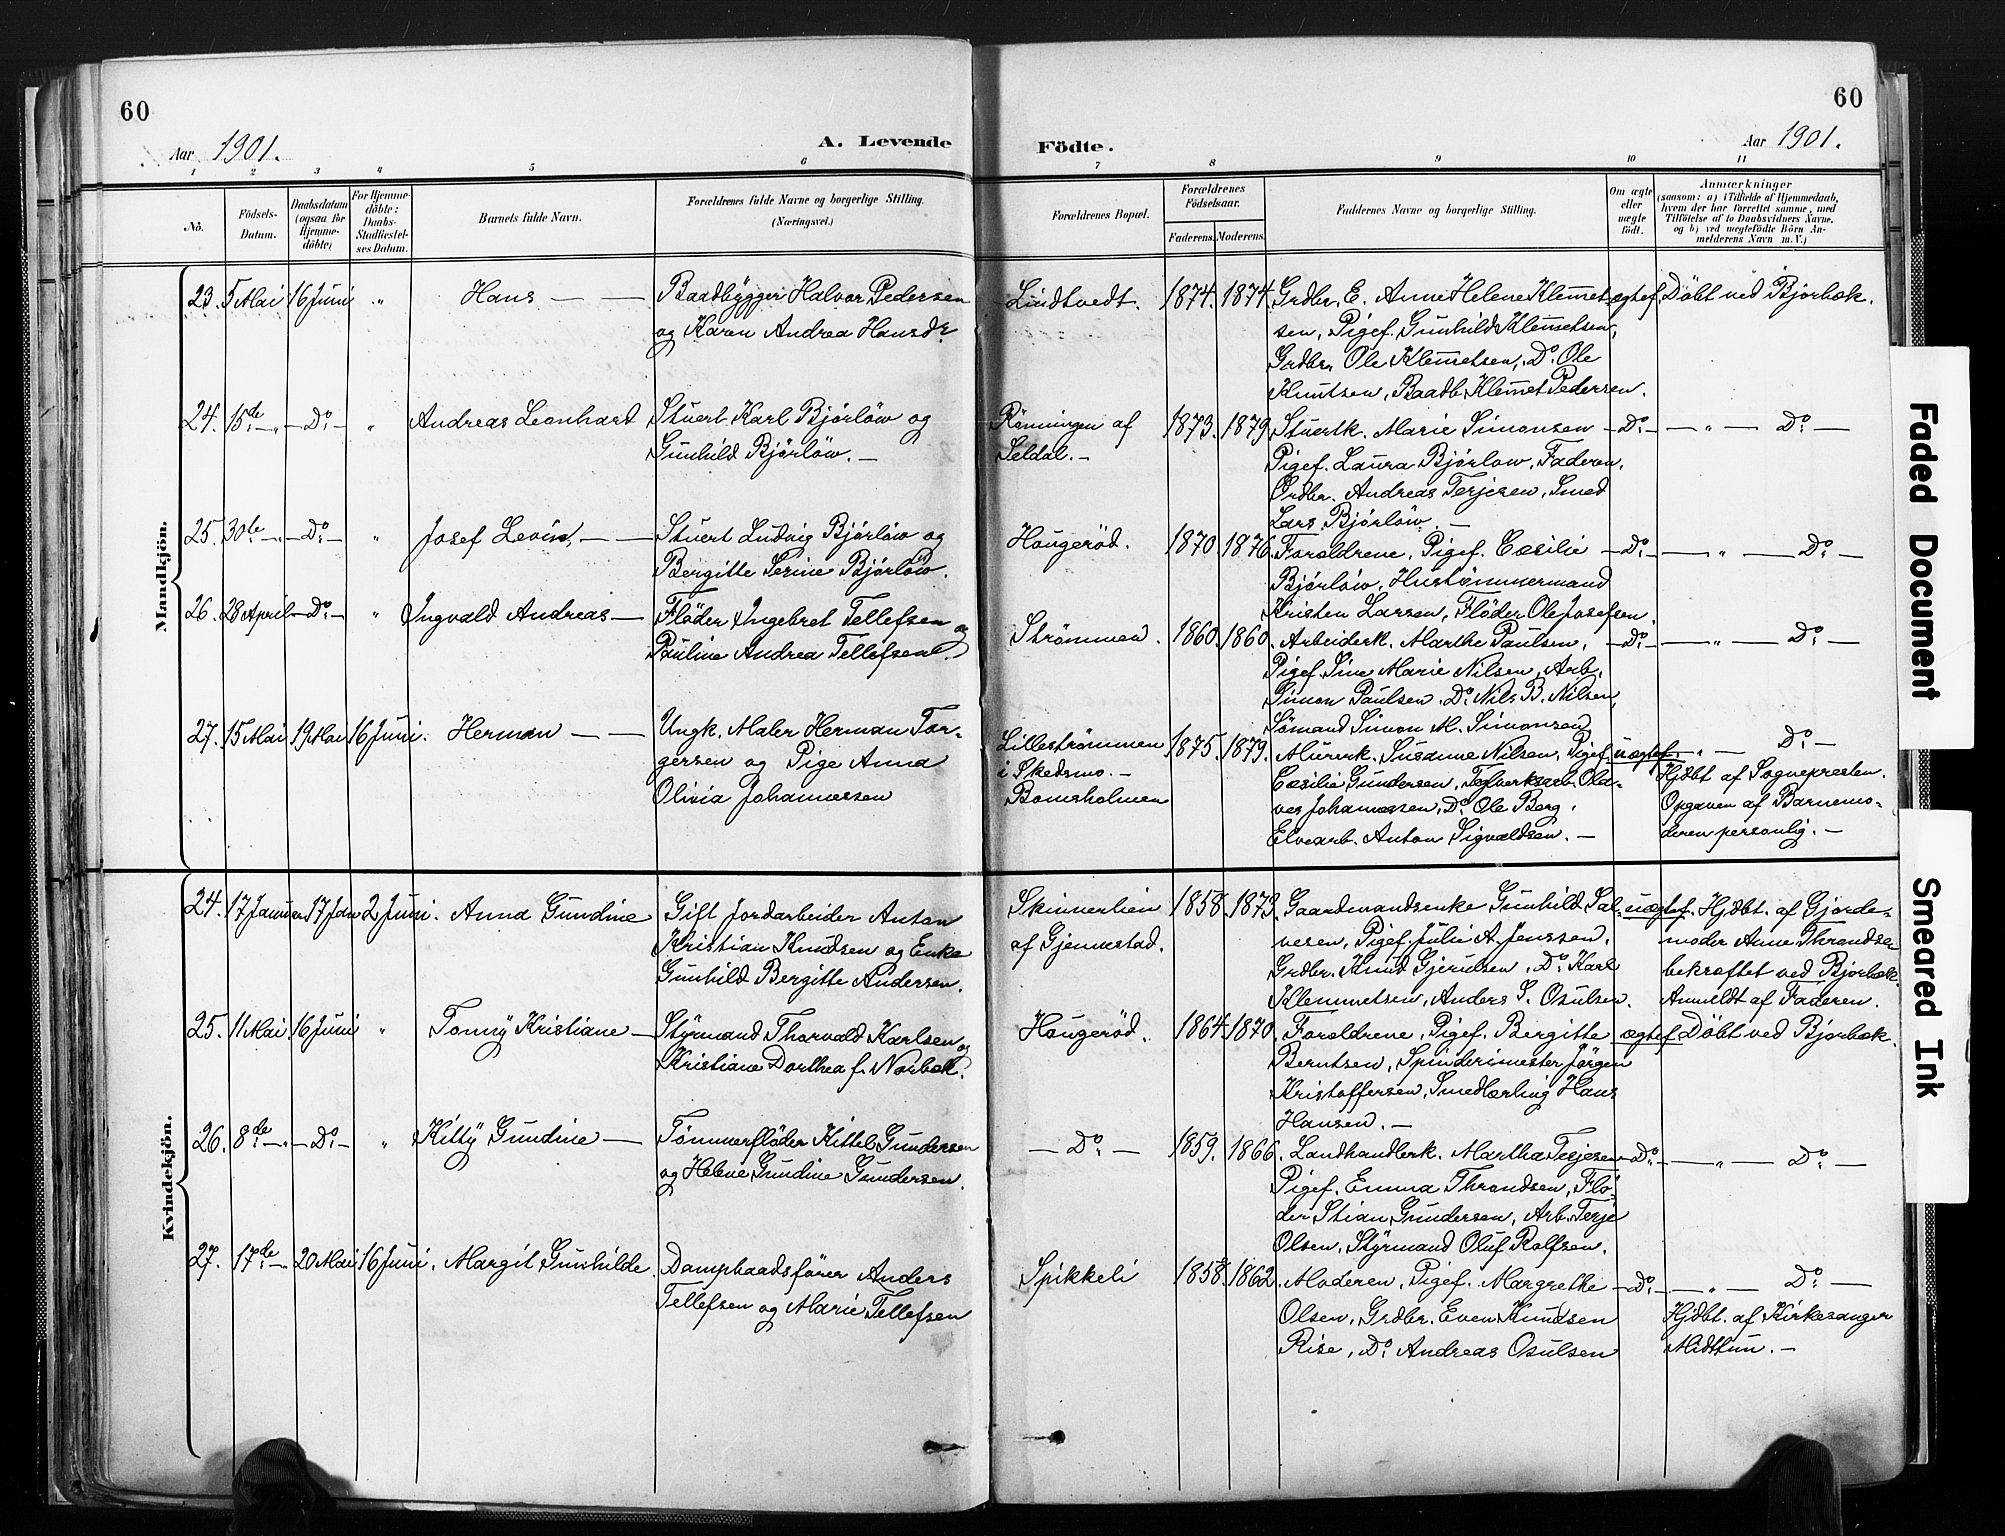 60
60
Aar 1901.
A. Levende
Födte.
Aar 1901.
1 2 3 4 5 6 7 8 9 10 11
No.
Födsels-
Datum.
Daabsdatum
(ogsaa for
Hjemme-
döbte)
For Hjemme-
döbte:
Daabs-
Stadfæstel-
ses Datum.
Barnets fulde Navn.
Forældrenes fulde Navne og borgerlige Stilling.
(Næringsvei.)
Forældrenes Bopæl.
Forældrenes
Födselsaar.
Faderens.
Moderens.
Faddernes Navne og borgerlige Stilling.
Om ægte
eller
uægte
födt.
Anmærkninger
(saasom: a) i Tilfælde af Hjemmedaab,
hvem der har forrettet samme, med
Tilföielse af to Daabsvidners Navne,
og b) ved uægtefödte Börn An-
melderens Navn m. V.)
Mandkjön.
23. 5 Mai 16 Juni " Hans — —
Baadbygger Halvor Pedersen
og Karen Andrea Hansdr.
Lindtvedt. 1874. 1874.
Grdbr. E. Anne Helene Klemet-
sen, Pigef. Gunhild Klemetsen,
Grdbr. Ole Klemetsen, Do. Ole
Knutsen, Baadb. Klemet Pedersen.
ægtef. Döbt ved Bjorbæk.
24. 15de — " — Do. — " Andreas Leonhard
Stuert Karl Bjørløw og
Gunhild Bjørløw. —
Rønningen af
Seldal. —
1873. 1879.
Stuertk. Marie Simonsen
Pigef. Laura Bjørlow, Faderen,
Grdbr. Andreas Terjesen, Smed
Lars Bjørløw. —
— Do. — — " — Do. —
25. 30te — " — Do. — " Josef Levin, — —
Stuert Ludvig Bjørløw og
Bergitte Serine Bjørløw.
Hougerød. 1870. 1876.
Forældrene, Pigef. Cæsilie
Bjørløw, Hustømmermand
Kristen Larsen, Fløder Ole Josefsen.
— Do. — — " — Do. —
26. 28 April — Do. — " Ingvald Andreas —
Fløder Ingebret Tellefsen og
Pauline Andrea Tellefsen.
Strømmen. 1860. 1860.
Arbeiderk. Marthe Paulsen,
Pigef. Sine Marie Nilsen, Arb.
Simon Paulsen, Do. Nils B. Nilsen,
Sømand Simon M. Simonsen
— Do. — — " — Do. —
27. 15 Mai 19 Mai 16 Juni. Herman — —
Ungk. Maler Herman Tor-
gersen og Pige Anna
Olivia Johannessen
Lillestrømmen
i Skedsmo. —
Bomsholmen
1875. 1879.
Murerk. Susanne Nilsen, Pigef.
Cæsilie Gundersen, Teglverksarb. Ola-
ves Johannessen, Do. Ole Berg,
Elvearb. Anton Sigvaldsen. —
uægtef. — " — Do. —
Hjdbt. af Sognepresten.
Opgaven af Barnemo-
deren personlig. —
Kvindekjön.
24. 17 Januar 17 Jan 2 Juni. Anna Gundine
Gift Jordarbeider Anton
Kristian Knudsen og Enke
Gunhild Bergitte Andersen.
Skinnerlien
af Gjennestad.
1858. 1873.
Gaardmandsenke Gunhild Sal-
vesen, Pigef. Julie A. Jenssen,
Grdbr. Knud Gjerulsen, Do. Karl
Klemmetsen, Anders S. Osulsen.
uægtef. Hjdbt. af Gjorde-
moder Anne Thrandsen
bekræftet ved Bjorbæk.
Anmeldt af Faderen.
25. 11 Mai 16 Juni " Tonny Kristiane —
Styrmand Thorvald Karlsen og
Kristiane Dorthea f. Norbæk.
Hougerød. 1864. 1870.
Forældrene, Pigef. Bergitte
Berntsen, Spinderimester Jørgen
Kristoffersen, Smedlærling Hans
Hansen. —
ægtef. Döbt ved Bjorbæk.
26. 8de — " — Do. — " Kitty Gundine —
Tømmerfløder Kittel Gundersen
og Helene Gundine Gundersen.
— Do. — 1859. 1866.
Landhandlerk. Martha Terjesen
Pigef. Emma Thrandsen, Flø-
der Stian Gundersen, Arb. Terje
Olsen, Styrmand Oluf Rolfsen.
— Do. — — " — Do. —
27. 17de — " — 20 Mai 16 Juni. Margit Gunhilde.
Dampbaadsfører Anders
Tellefsen og Marie Tellefsen
Spikkeli 1858. 1862.
Moderen, Pigef. Margrethe
Olsen, Grdbr. Even Knudsen
Rise, Do. Andreas Osulsen
— Do. — — " — Do. —
Hjdbt. af Kirkesanger
Midttun. —
Faded Document
Smeared Ink